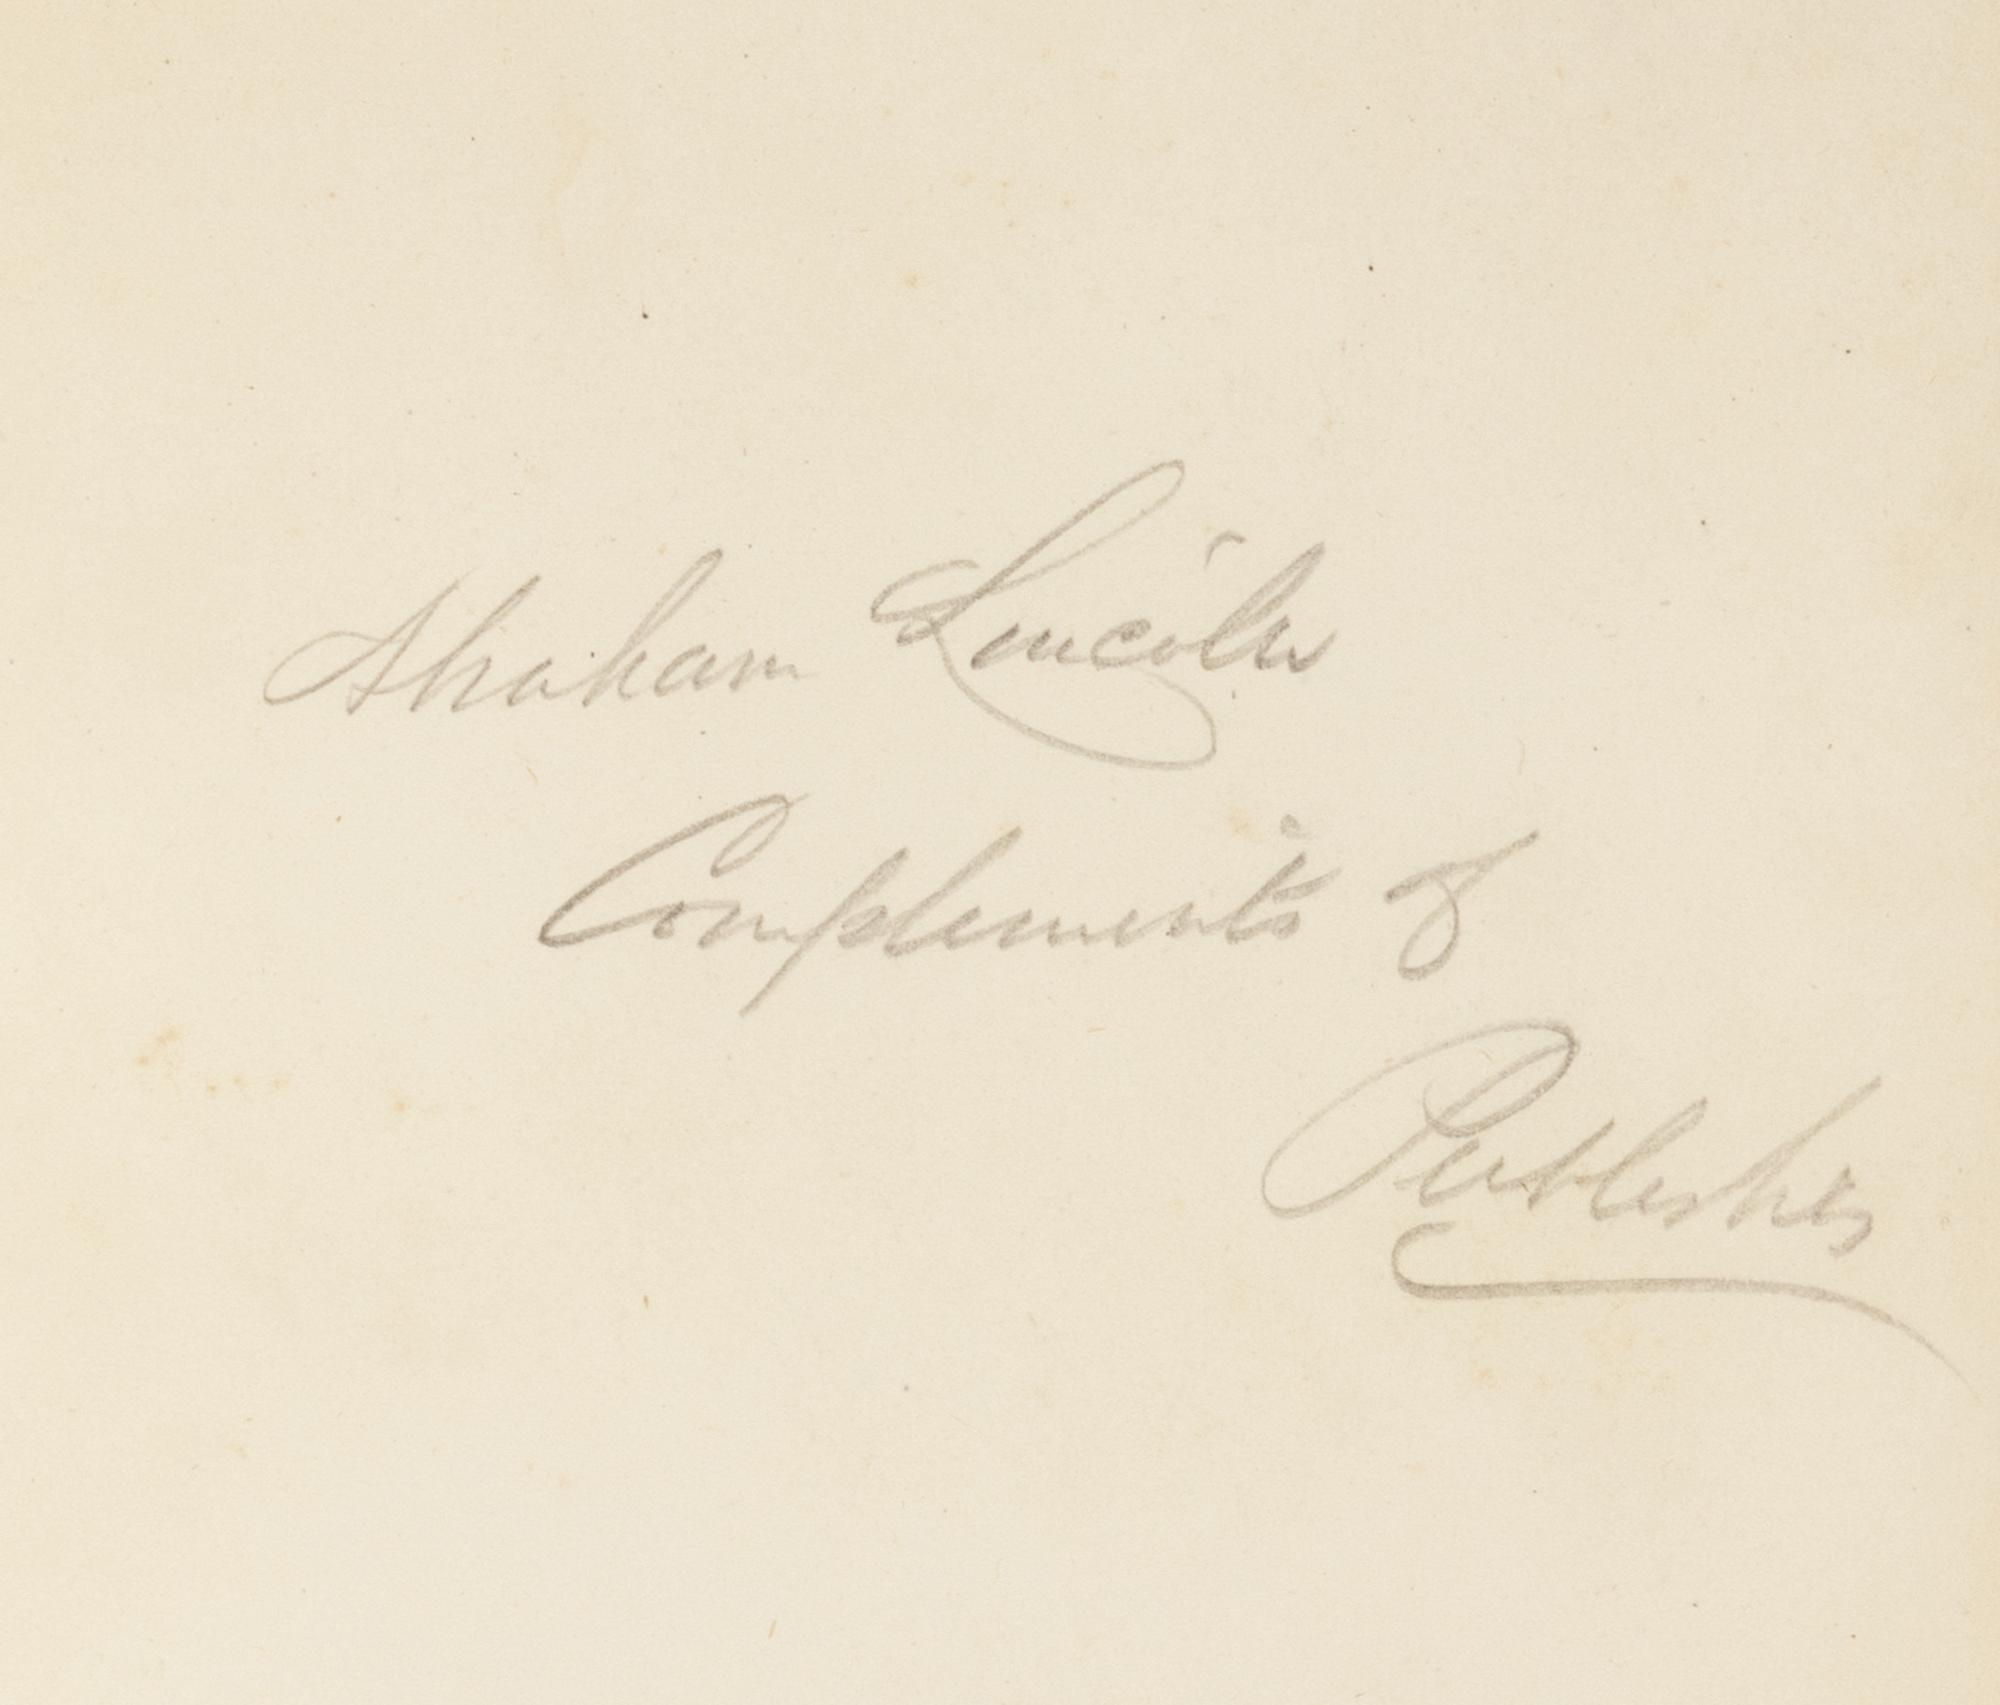 Abraham Lincoln
Compliments of
Publisher